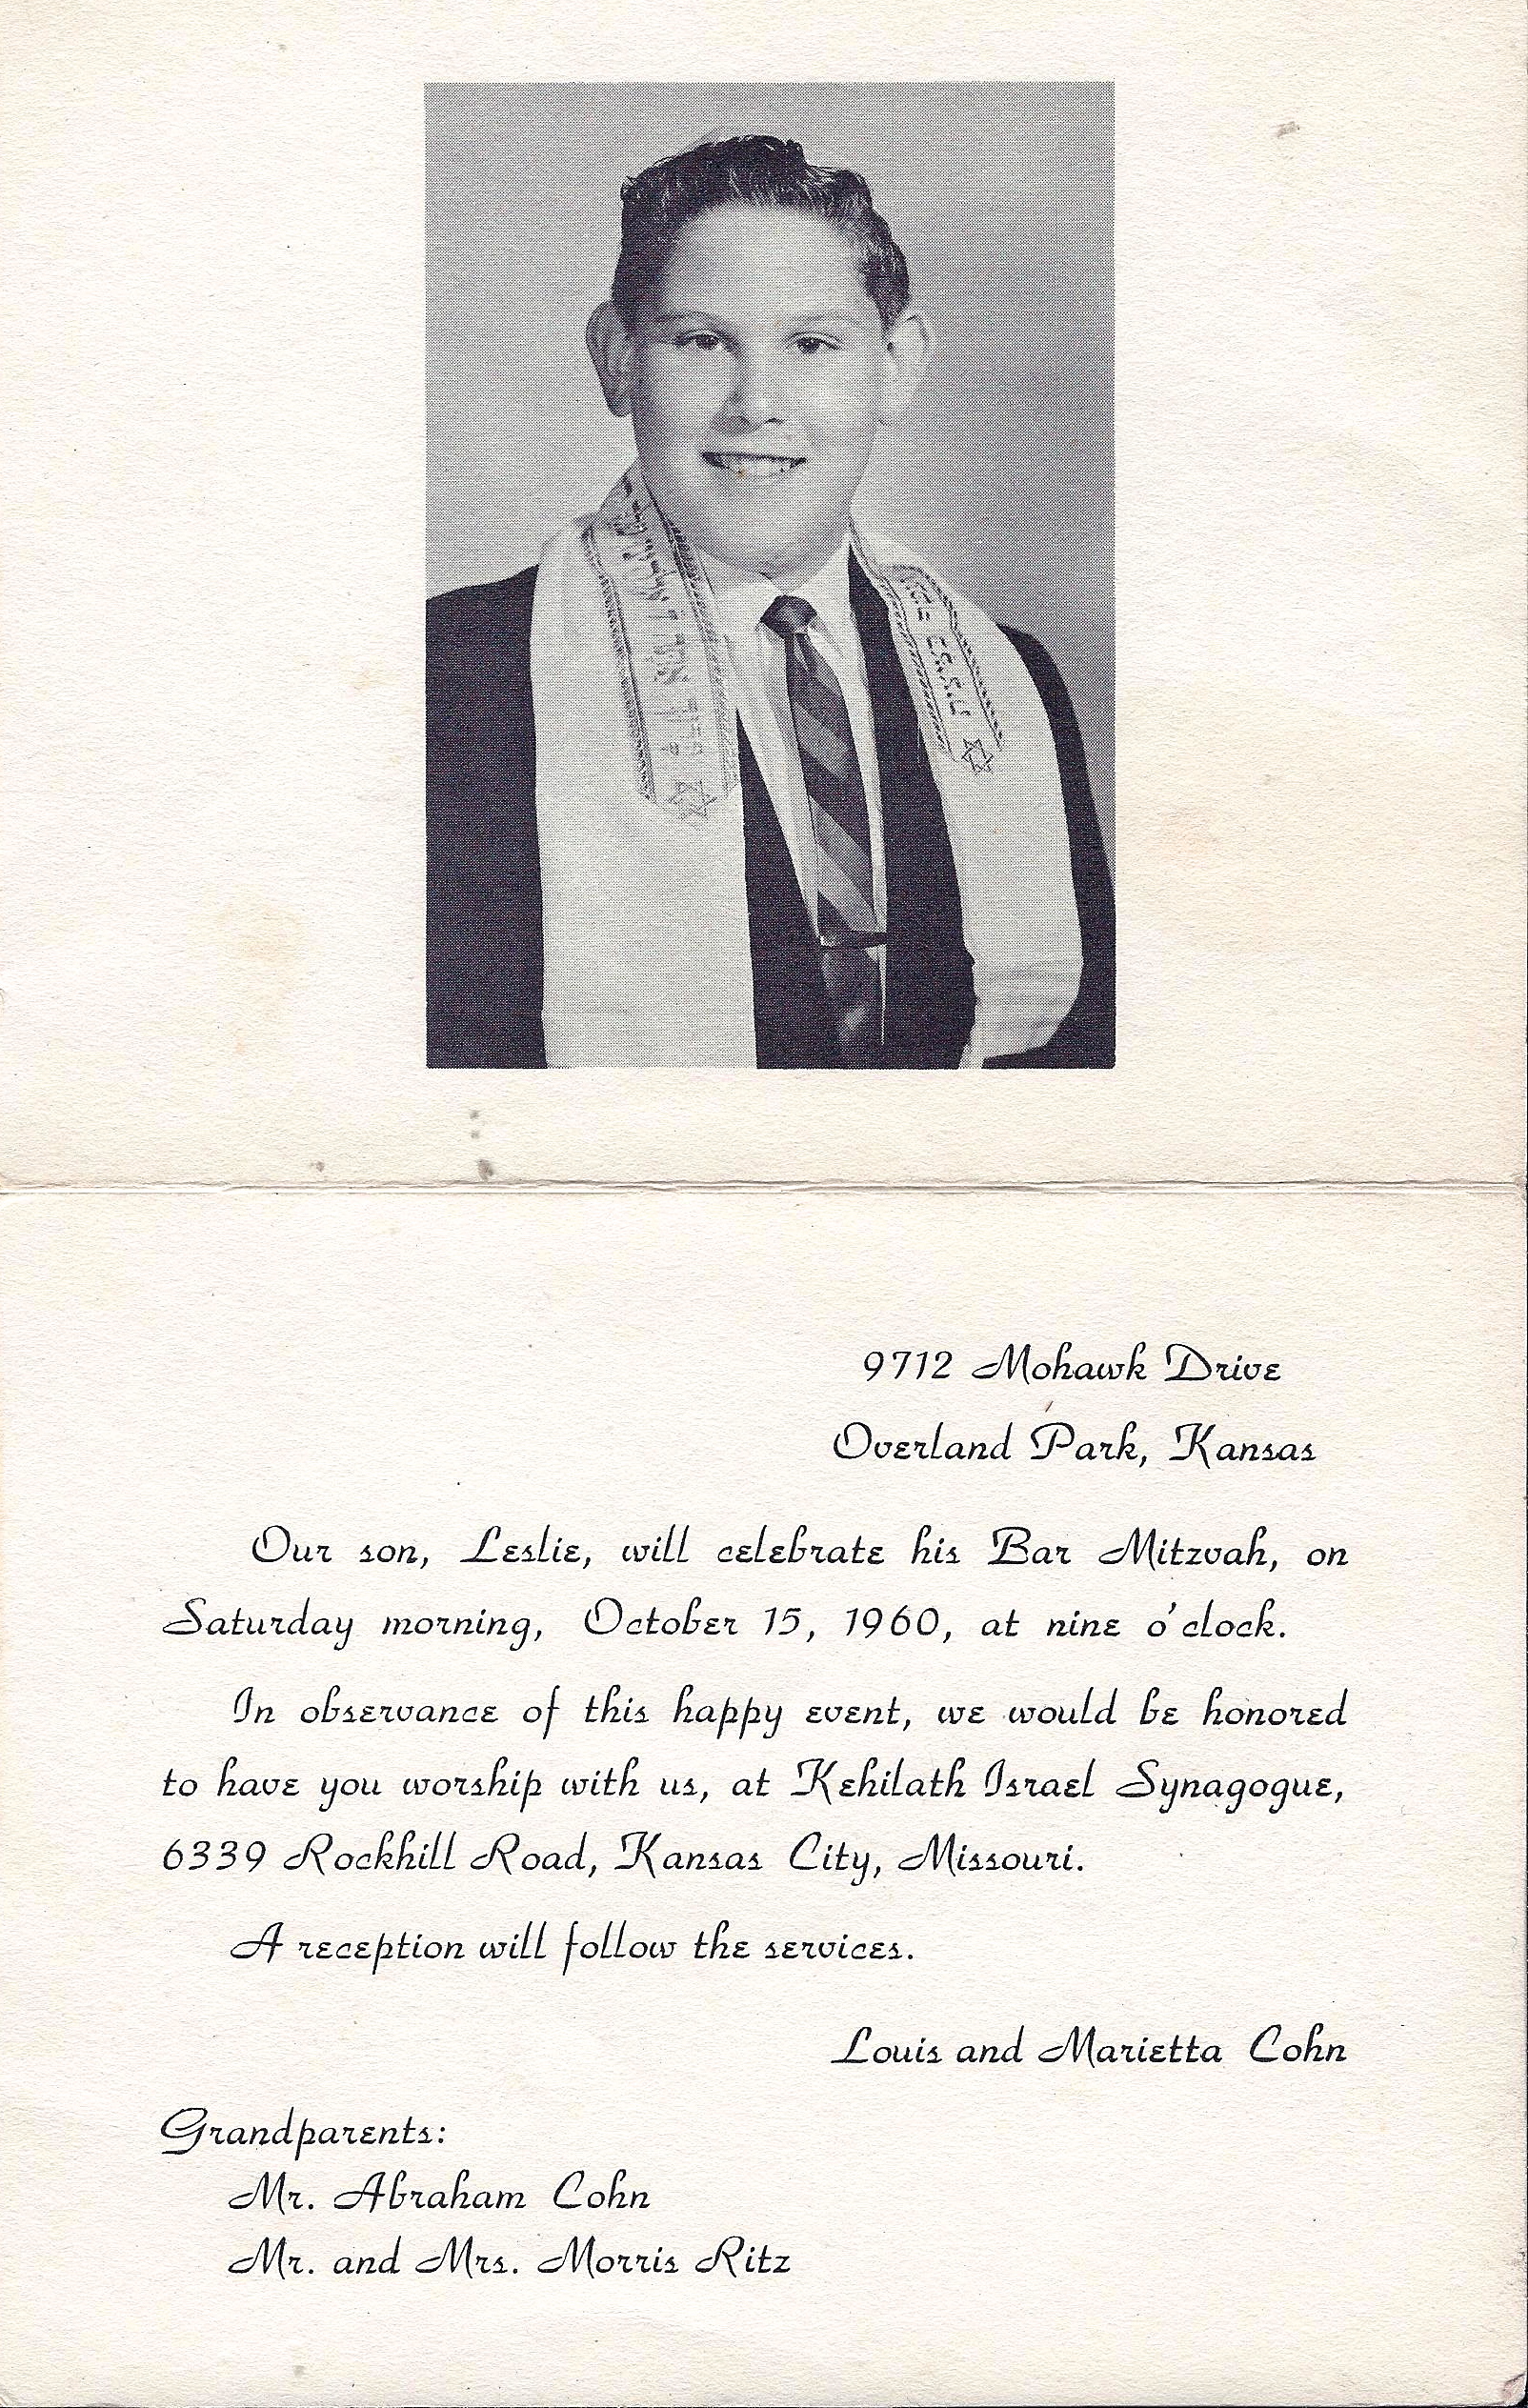 9712 Mohawk Drive
Overland Park, Kansas
Our son, Leslie, will celebrate his Bar Mitzvah, on
Saturday morning, October 15, 1960, at nine o'clock.
In observance of this happy event, we would be honored
to have you worship with us, at Kehilath Israel Synagogue,
6339 Rockhill Road, Kansas City, Missouri.
A reception will follow the services.
Louis and Marietta Cohn
Grandparents:
Mr. Abraham Cohn
Mr. and Mrs. Morris Ritz